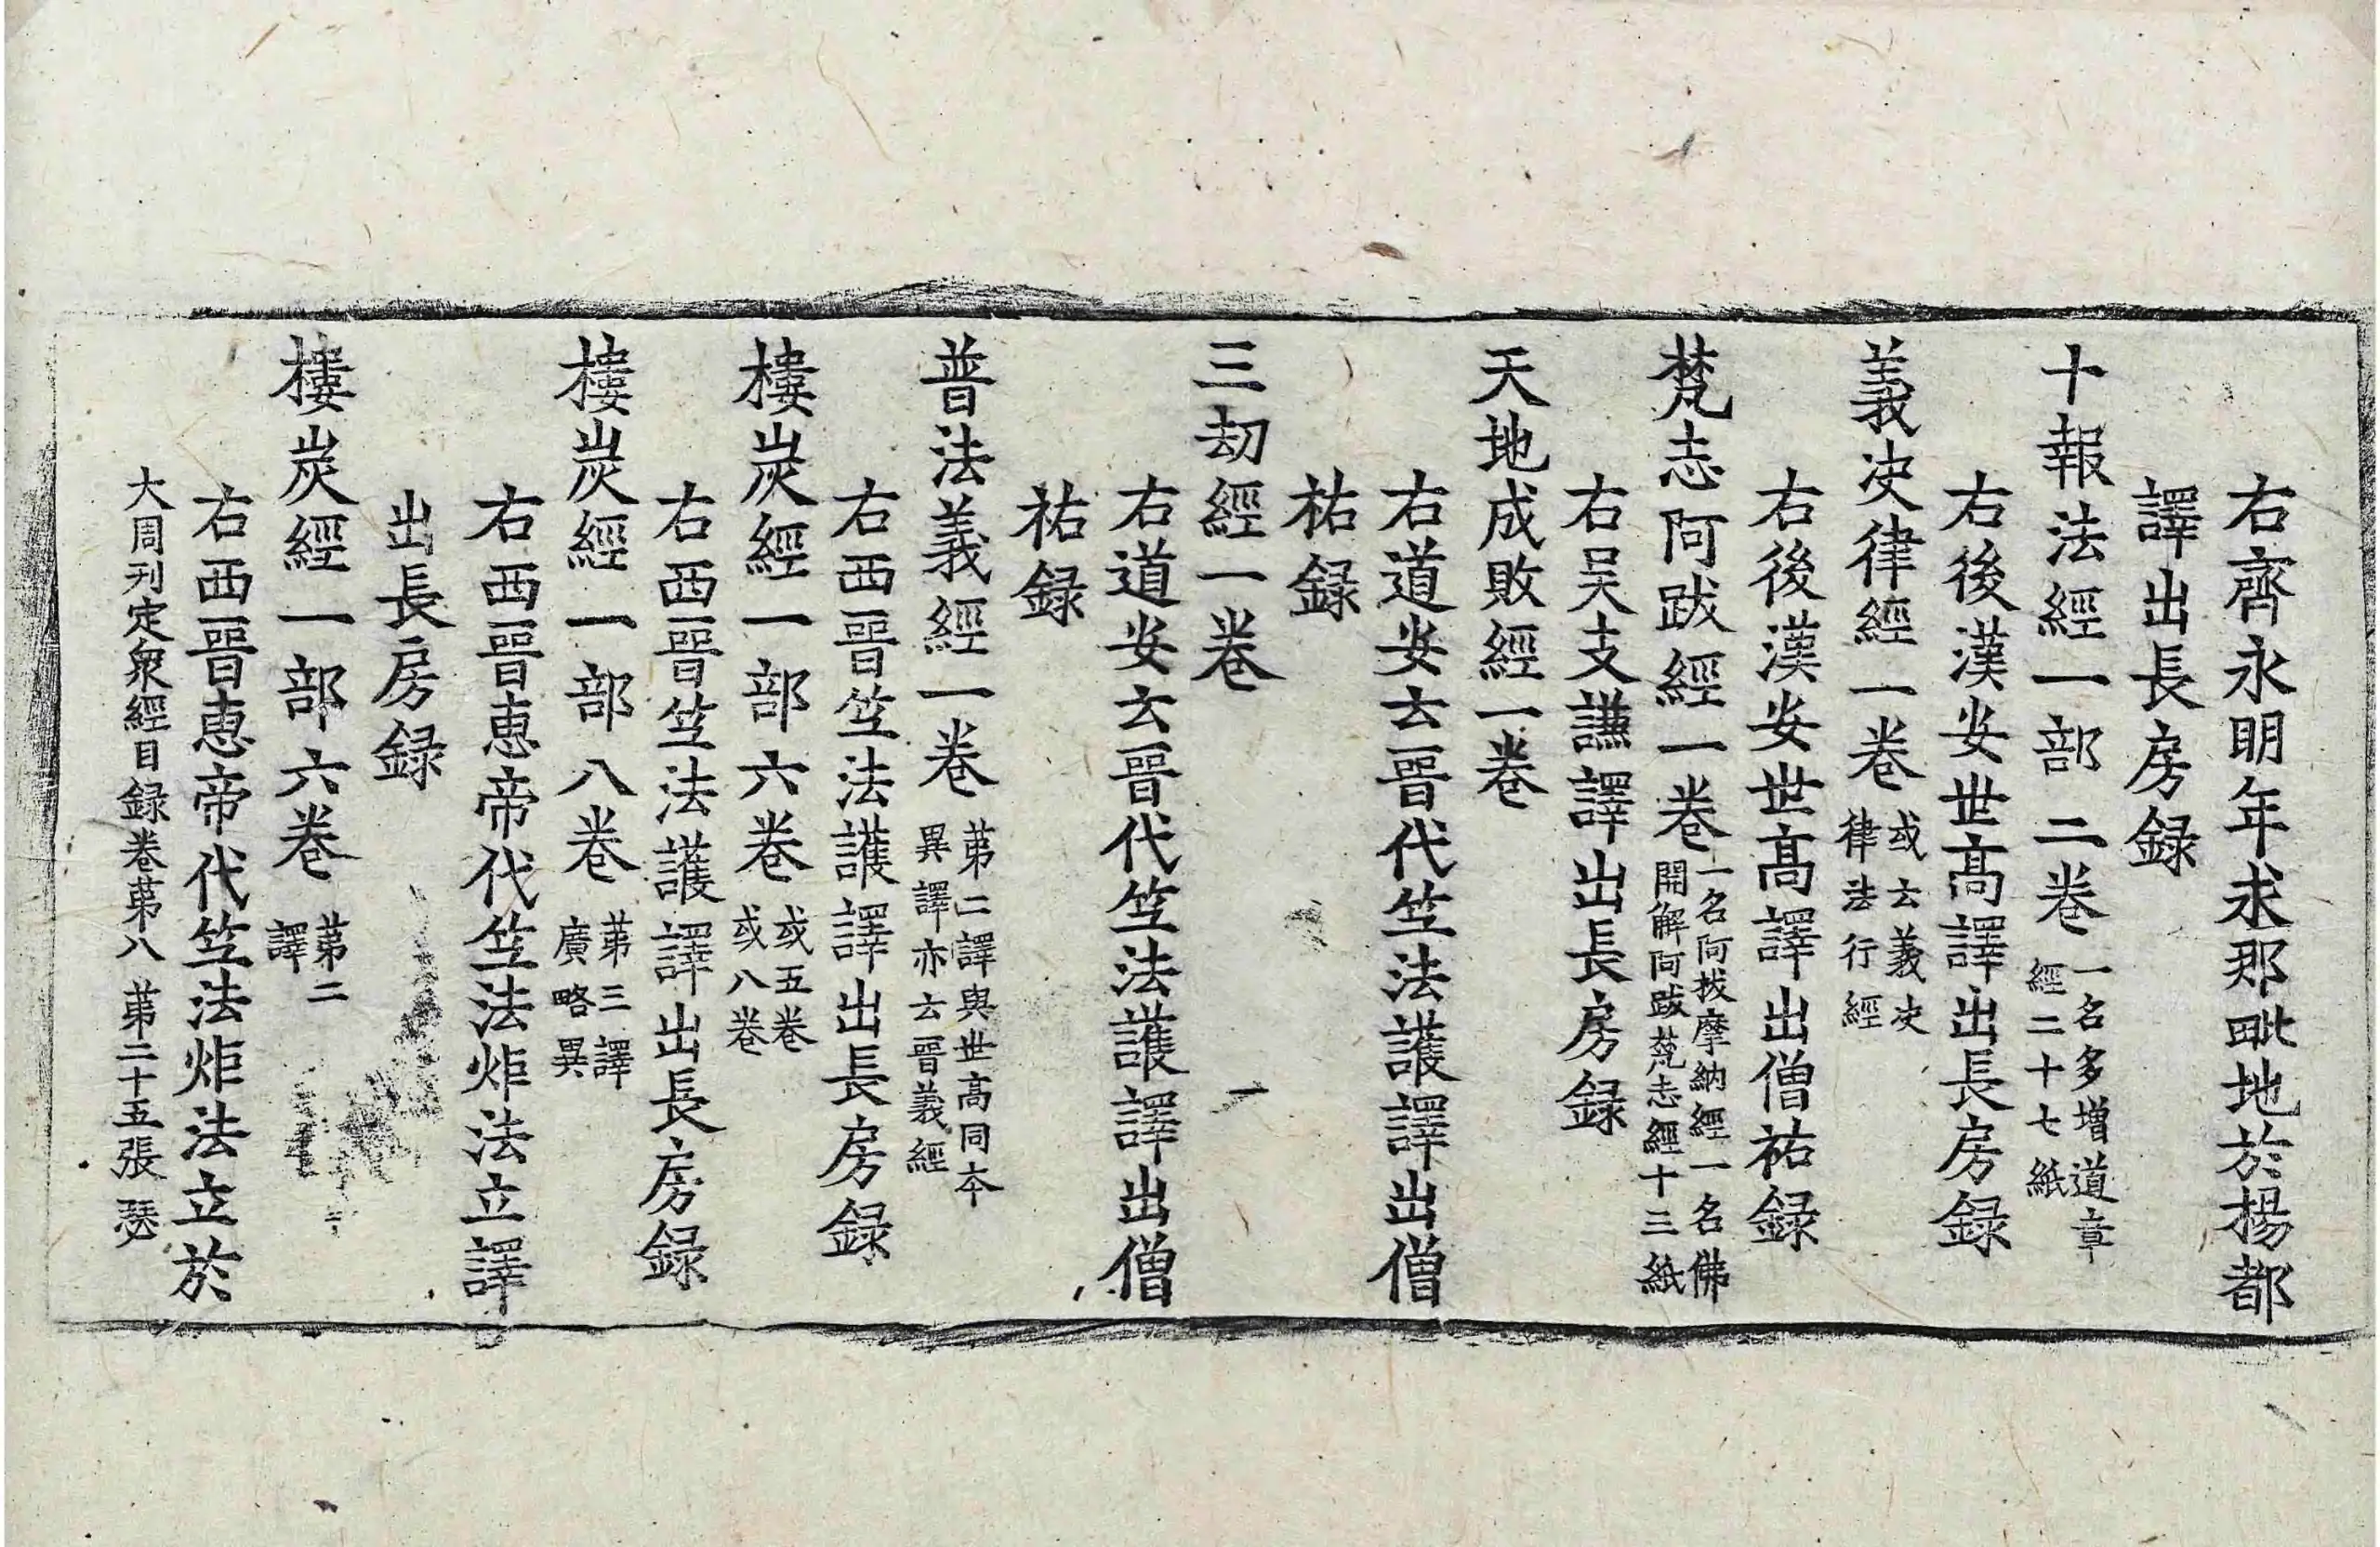 右齊永明年求那毗地於楊都
譯出長房録
十報法經一部二卷一名多增道章經二十七紙
右後漢安世髙譯出長房録
義决律經一卷或云義决律法行經
右後漢安世髙譯出僧祐録
梵志阿跋經一卷一名阿拔摩納經一名佛開解阿跋梵志經十三紙
右吴支謙譯出長房録
天地成敗經一卷
右道安云晉代竺法護譯出僧
祐録
三刧經一卷
右道安云晉代竺法護譯出僧
祐録
普法義經一卷苐二譯與世高同本異譯亦云晉義經
右西晉竺法護譯出長房録
樓炭經一部六卷或五卷或八卷
右西晉竺法護譯出長房録
樓炭經一部八卷苐三譯廣略異
右西晉恵帝代竺法炬法立譯
出長房録
樓炭經一部六卷苐二譯
右西晉恵帝代竺法炬法立於
大周刋定衆經目録卷苐八 苐二十五張 瑟